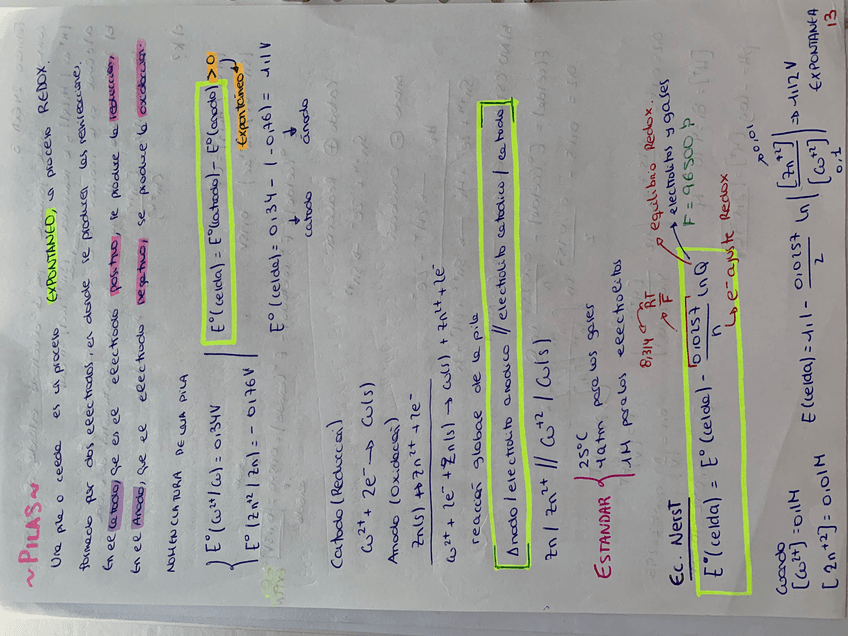 ~PILAS~
Una pila o celda es un proceso EXPONTANEO, un proceso REDOX
formado por dos electrodos, es donde se producen las reacciones.
En el catodo, que es el electrodo positivo, se produce la reducción,
En el Anodo, que es el electrodo negativo, se produce la oxidación.
NOMENCLATURA DE UNA PILA
E°(Cu²⁺/Cu) = 0,34V
E°(Zn⁺²/Zn) = -0,76V
E°(celda) = E°(catodo) - E°(anodo) >0
Expontáneo
E°(celda) = 0,34 - (-0,76) = 1,1V
catodo ánodo
Catodo (Reducción)
Cu²⁺ + 2e⁻ → Cu(s)
Anodo (Oxidación)
Zn(s) → Zn²⁺ + 2e⁻
Cu²⁺ + 2e⁻ + Zn(s) → Cu(s) + Zn²⁺ + 2e⁻
reacción global de la pila
Anodo / electrolito anodico // electrolito catodico / catodo
Zn / Zn²⁺ // Cu⁺² / Cu(s)
ESTANDAR
25°C
1atm para los gases
1M para los electrolitos
8,314
RT
F
equilibrio Redox.
Ec. Nerst
electrolitos y gases
E°(celda) = E°(celda) - 0,0257/n lnQ
F = 96500
e⁻ ajuste Redox
Cuando
[Cu²⁺] = 0,1M
[Zn⁺²] = 0,01M
E(celda) = 1,1 - 0,0257/2 ln [Zn⁺²]/[Cu⁺²] → 1,12V
0,01
0,1
EXPONTANEA
13